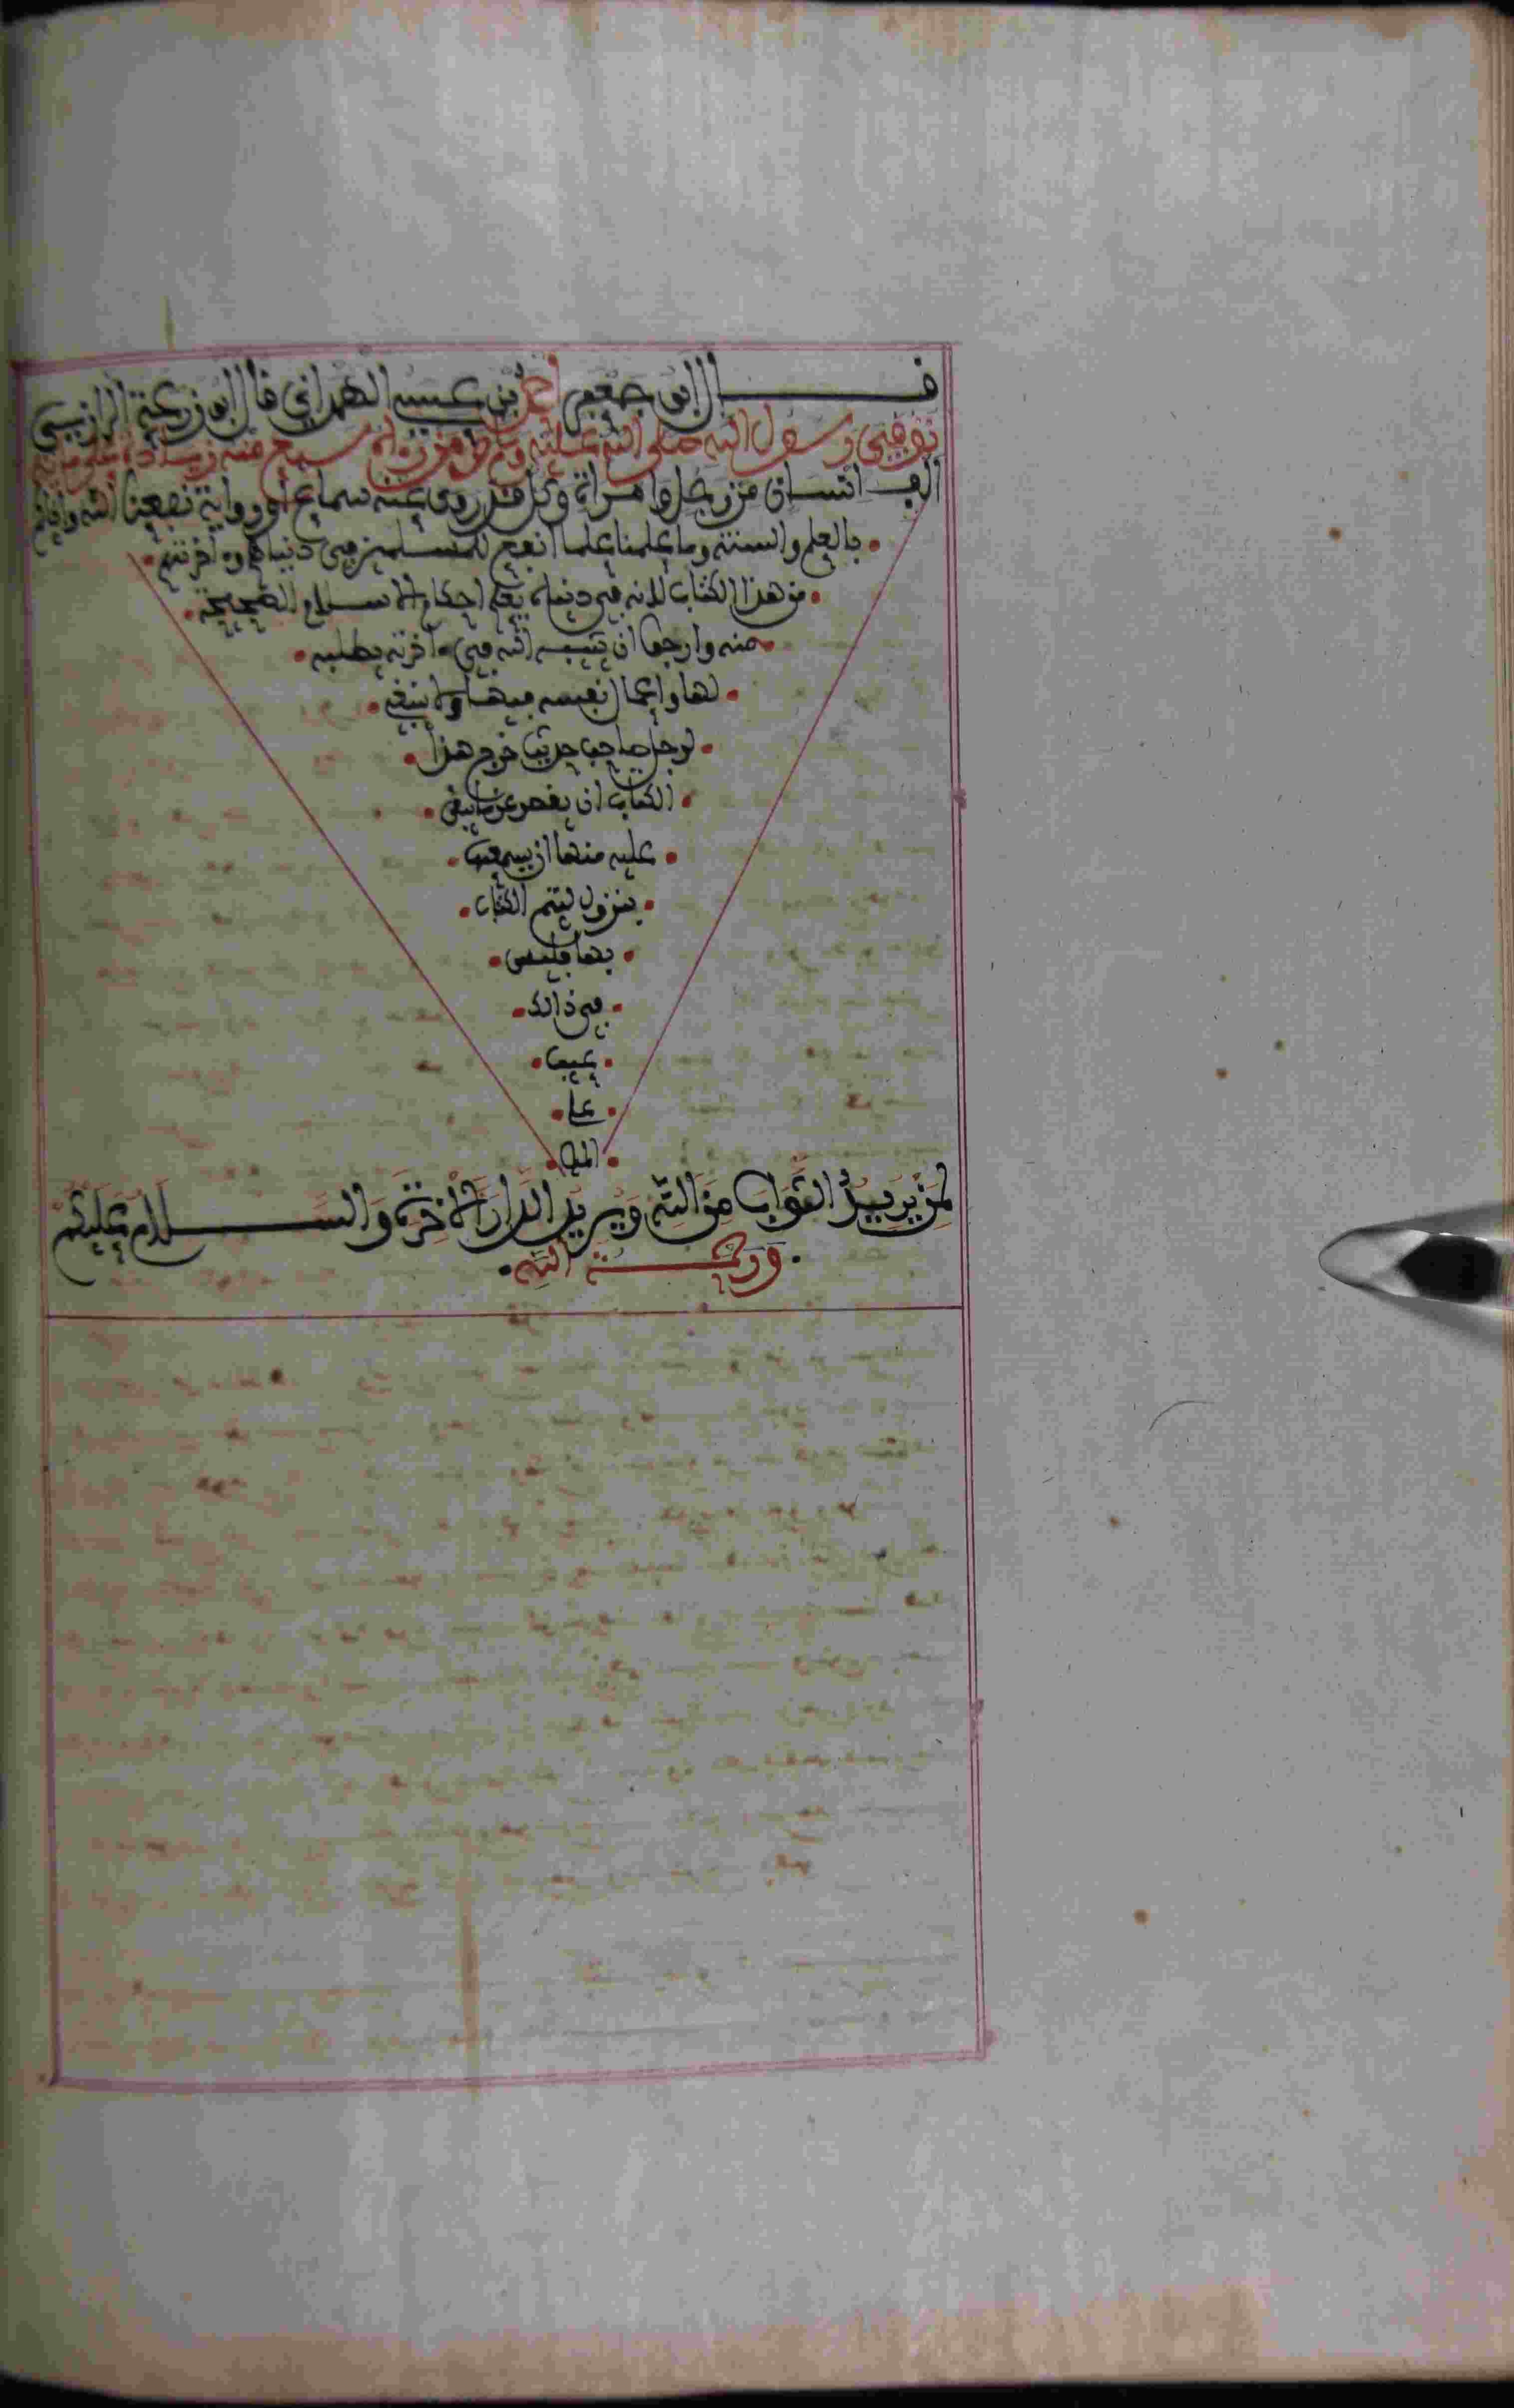 قال ابو جعفر احمد بن عيسى الهمداني قال ابو زرعة الرازي
توفي رسول الله صلى الله عليه وسلم ومن رءاه وسمع منه زيادة على مائة
الف انسان من رجل وامراة وكل قد روى عنه سماعا ورواية نفعنا الله واياكم
بالعلم والسنة وما علمنا علما انفع للمسلمين في دنياهم وءاخرتهم
من هذا الكتاب لانه في دنياه يعلم احكام الاسلام الصحيحة
منه وارجوا ان يثيبه الله في ءاخرته بطلبه
لها واعمال نفسه فيها ولا ينبغي
لرجل صاحب حديث خرج هذا
الكتاب ان يقصر عن ما بقي
عليه منها ان يسمعها
بنزول ليتم الكتاب
بها فليس
في ذالك
عيب
على
لمن يريد الثواب من الله ويريد الدار الاخرة والسلام عليكم
ورحمة الله